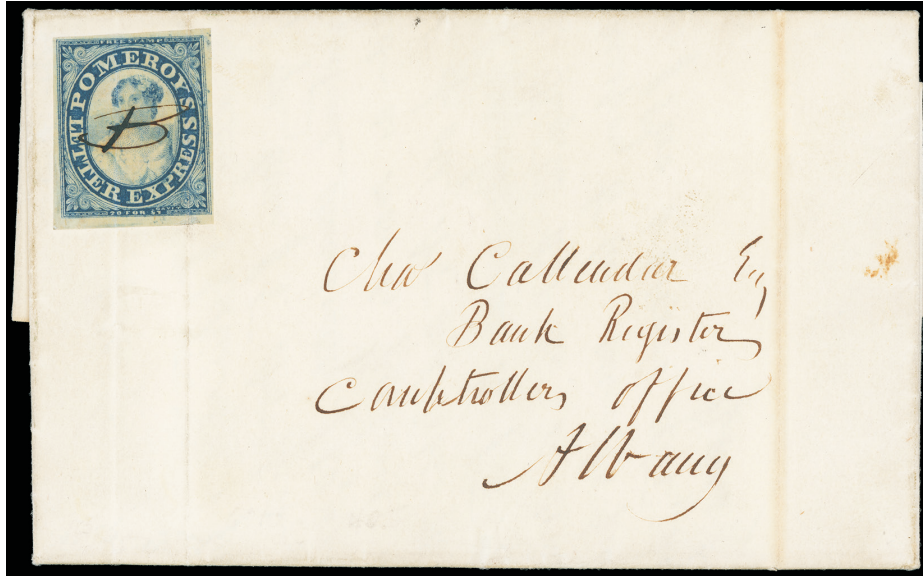 FREE STAMP
POMEROY'S
LETTER EXPRESS
20 FOR $1
B
Chas Callendar Esq
Bank Register
Comptrollers office
Albany